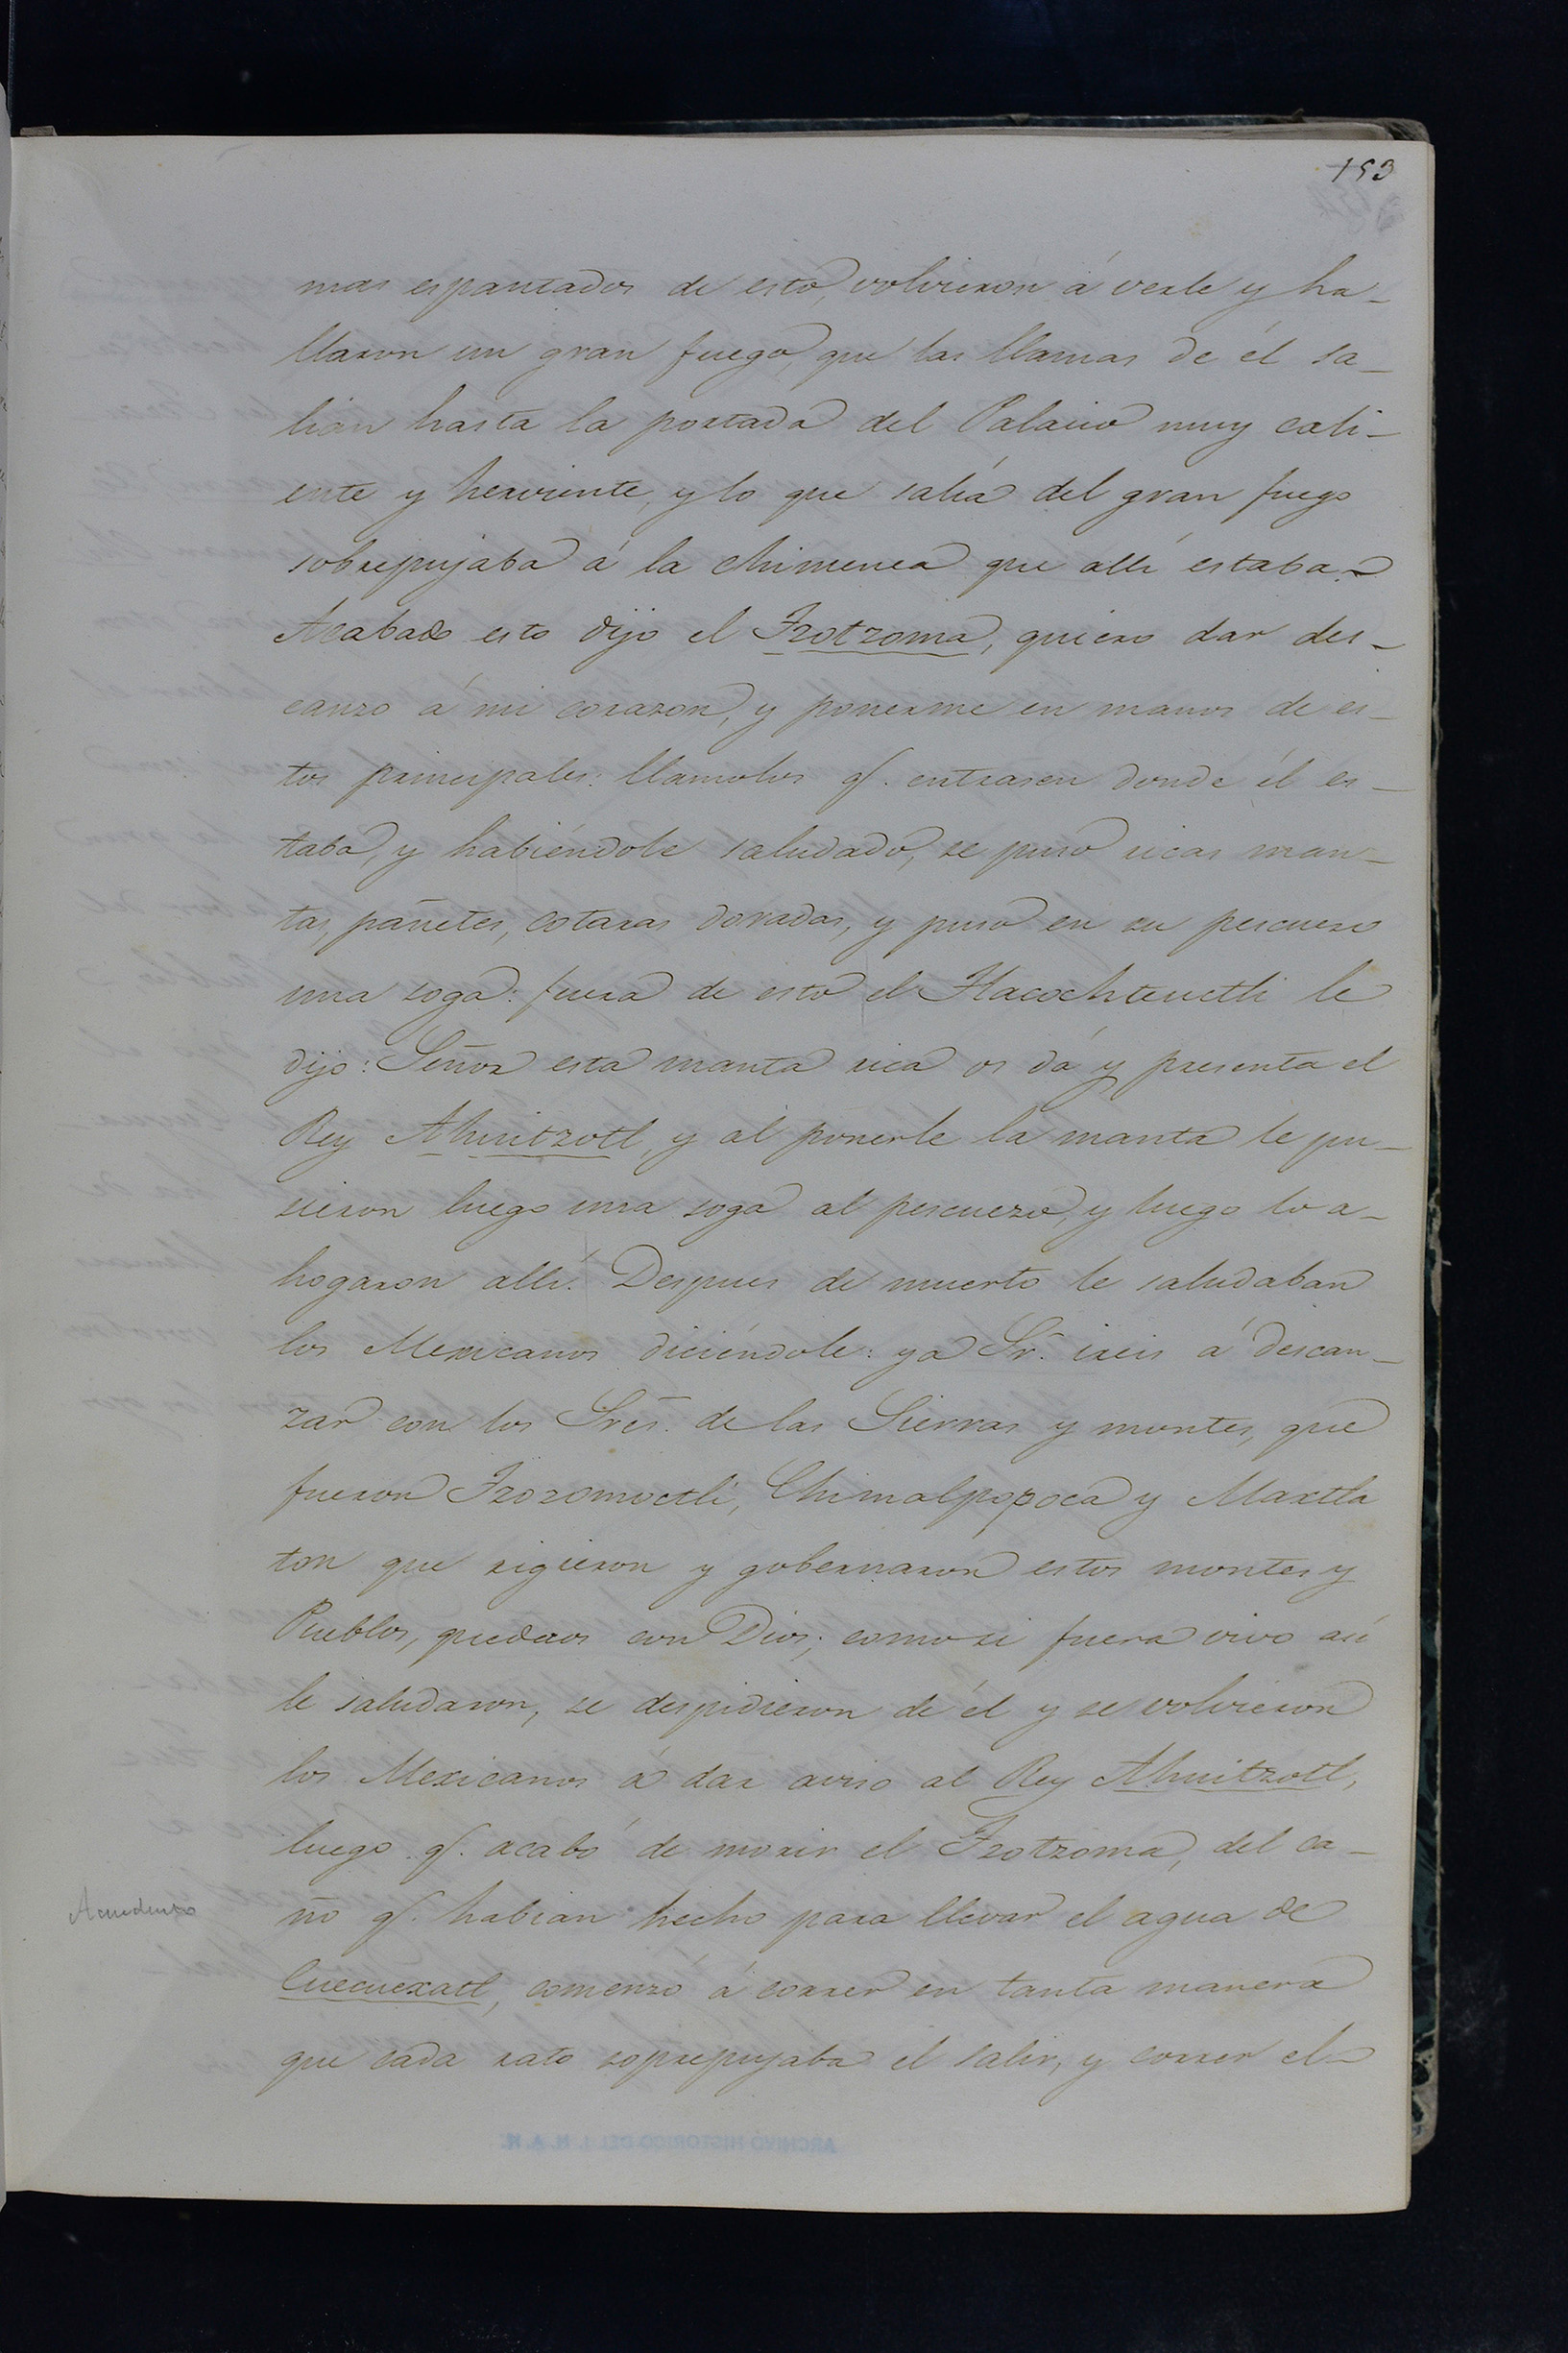 193
mas espantados de esto, volvieron á verle y ha-
llaron un gran fuego, que las llamas de él sa-
lian hasta la portada del Palacio muy cali-
ente y herviente, y lo que salía del gran fuego
sobrepujaba á la chimenea que allí estaba.
Acabado esto dijo el Tzotzoma, quiero dar des-
canzo á mi corazon, y ponerme en manos de es-
tos principales: llamolos q.e entrasen donde él es-
taba, y habiéndole saludado, se puso ricas man-
tas, pañetes, cotaras doradas, y puso en su pescuezo
una soga: fuera de esto el Tlacochteuctli le
dijo: Señor esta manta rica os dá y presenta el
Rey Ahuitzotl, y al ponerle la manta le pu-
sieron luego una soga al pescuezo, y luego lo a-
hogaron allí. Despues de muerto le saludaban
los Mexicanos diciéndole: ya Sr. ireis á descan-
zar con los Sres. de las Sierras y montes, que
fueron Tzozomoctli, Chimalpopoca y Maxtla
ton que rigieron y gobernaron estos montes y
Pueblos, quedaos con Dios; como si fuera vivo así
le saludaron, se despidieron de él y se volvieron
los Mexicanos á dar aviso al Rey Ahuitzotl,
luego q.e acabó de morir el Tzotzoma, del ca-
ño q.e habian hecho para llevar el agua de
Cuecuexatl, comenzó á correr en tanta manera
que cada rato soprepujaba el salir, y correr el
Acueducto
ARCHIVO HISTORICO DEL I. N. A. H.